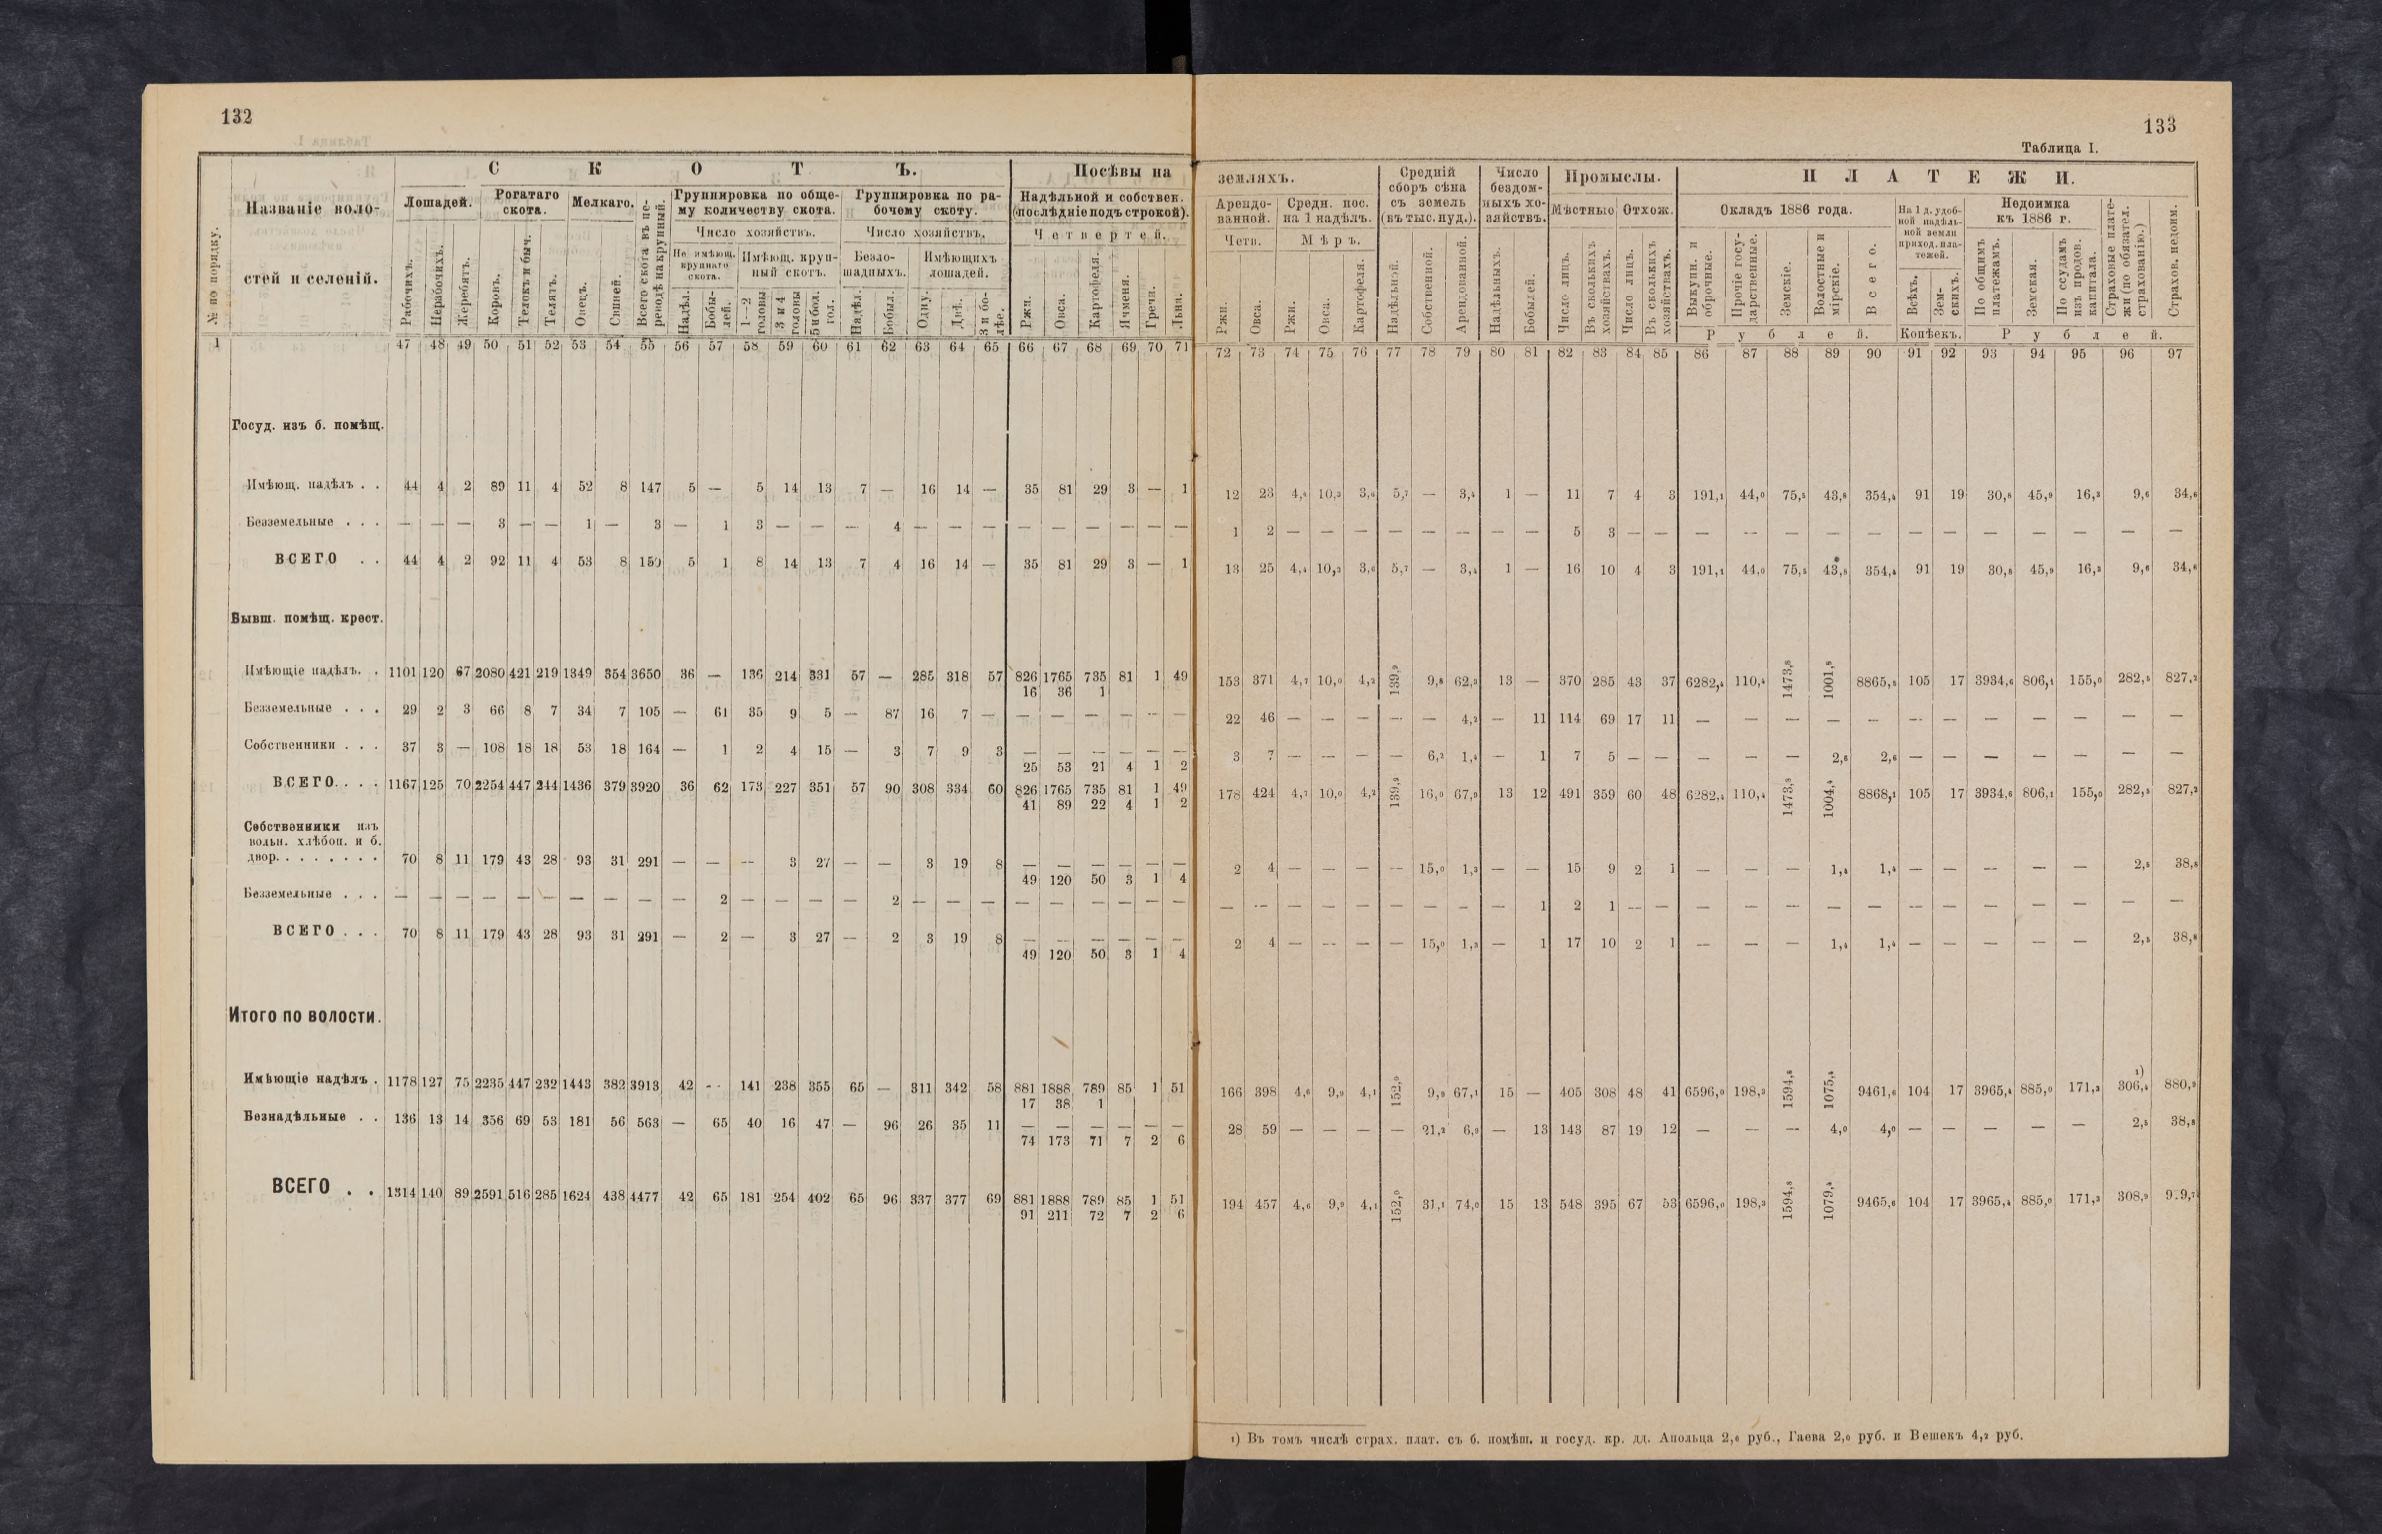 132
133
Таблица I.
№ по порядку.
Названіе воло-
стей и селеній.
С К О Т Ъ.
Лошадей.
Рогатаго
скота.
Мелкаго.
Всего скота въ пе-
реводѣ на крупный.
Группировка по обще-
му количеству скота.
Группировка по ра-
бочему скоту.
Число хозяйствъ.
Число хозяйствъ.
Не имѣющ.
крупнаго
скота.
Имѣющ. круп-
ный скотъ.
Безло-
шадныхъ.
Имѣющихъ
лошадей.
Рабочихъ.
Нерабочихъ.
Жеребятъ.
Коровъ.
Телокъ и быч.
Телятъ.
Овецъ.
Свиней.
Надѣл.
Бобы-
лей.
1—2
головы
3 и 4
головы
5 и бол.
гол.
Надѣл.
Бобыл.
Одну.
Двѣ.
3 и бо-
лѣе.
Посѣвы на
Надѣльной и собствен.
(послѣдніе подъ строкой).
Ч е т в е р т е й.
Ржи.
Овса.
Картофеля.
Ячменя.
Гречи.
Льна.
земляхъ.
Арендо-
ванной.
Средн. пос.
на 1 надѣлъ.
Четв.
М ѣ р ъ.
Ржи.
Овса.
Ржи.
Овса.
Картофеля.
Средній
сборъ сѣна
съ земель
(въ тыс. пуд.).
Надѣльной.
Собственной.
Арендованной.
Число
бездом-
ныхъ хо-
зяйствъ.
Надѣльныхъ.
Бобылей.
Промыслы.
Мѣстные
Отхож.
Число лицъ.
Въ сколькихъ
хозяйствахъ.
Число лицъ.
Въ сколькихъ
хозяйствахъ.
П Л А Т Е Ж И.
Окладъ 1886 года.
На 1 д. удоб-
ной надѣль-
ной земли
приход. пла-
тежей.
Недоимка
къ 1886 г.
Выкупн. и
оброчные.
Прочіе госу-
дарственные.
Земскіе.
Волостные и
мірскіе.
В с е г о.
Всѣхъ.
Зем-
скихъ.
По общимъ
платежамъ.
Земская.
По ссудамъ
изъ продов.
капитала.
Страховые плате-
жи (по обязател.
страхованію.)
Страхов. недоим.
Р у б л е й.
Копѣекъ.
Р у б л е й.
1 47 48 49 50 51 52 53 54 55 56 57 58 59 60 61 62 63 64 65 66 67 68 69 70 71 72 73 74 75 76 77 78 79 80 81 82 83 84 85 86 87 88 89 90 91 92 93 94 95 96 97
Госуд. изъ б. помѣщ.
Имѣющ. надѣлъ . . 44 4 2 89 11 4 52 8 147 5 — 5 14 13 7 — 16 14 — 35 81 29 3 — 1 12 23 4,4 10,3 3,6 5,7 — 3,4 1 — 11 7 4 3 191,1 44,0 75,5 43,8 354,4 91 19 30,8 45,9 16,3 9,6 34,6
Безземельные . . . — — — 3 — — 1 — 3 — 1 3 — — — 4 — — — — — — — — — 1 2 — — — — — — — — 5 3 — — — — — — — — — — — — — —
ВСЕГО . . 44 4 2 92 11 4 53 8 150 5 1 8 14 13 7 4 16 14 — 35 81 29 3 — 1 13 25 4,4 10,3 3,6 5,7 — 3,4 1 — 16 10 4 3 191,1 44,0 75,5 43,8 354,4 91 19 30,8 45,9 16,3 9,6 34,6
Бывш. помѣщ. крест.
Имѣющіе надѣлъ. . 1101 120 67 2080 421 219 1349 354 3650 36 — 136 214 331 57 — 285 318 57 826 1765 735 81 1 49 153 371 4,7 10,0 4,2 139,9 9,8 62,3 13 — 370 285 43 37 6282,4 110,4 1473,8 1001,8 8865,5 105 17 3934,6 806,1 155,0 282,5 827,3
16 36 1
Безземельные . . . 29 2 3 66 8 7 34 7 105 — 61 35 9 5 — 87 16 7 — — — — — — — 22 46 — — — — — 4,2 — 11 114 69 17 11 — — — — — — — — — — — —
Собственники . . . 37 3 — 108 18 18 53 18 164 — 1 2 4 15 — 3 7 9 3 — — — — — — 3 7 — — — — 6,2 1,4 — 1 7 5 — — — — — 2,6 2,6 — — — — — — —
25 53 21 4 1 2
ВСЕГО. . . . 1167 125 70 2254 447 244 1436 379 3920 36 62 173 227 351 57 90 308 334 60 826 1765 735 81 1 49 178 424 4,7 10,0 4,2 139,9 16,0 67,9 13 12 491 359 60 48 6282,4 110,4 1473,8 1004,4 8868,1 105 17 3934,6 806,1 155,0 282,5 827,3
41 89 22 4 1 2
Собственники изъ
вольн. хлѣбоп. и б.
двор. . . . . . . . 70 8 11 179 43 28 93 31 291 — — — 3 27 — — 3 19 8 — — — — — — 2 4 — — — — 15,0 1,3 — — 15 9 2 1 — — — 1,4 1,4 — — — — — 2,5 38,8
49 120 50 3 1 4
Безземельные . . . — — — — — — — — — — 2 — — — — 2 — — — — — — — — — — — — — — — — — — 1 2 1 — — — — — — — — — — — — — —
ВСЕГО . . . 70 8 11 179 43 28 93 31 291 — 2 — 3 27 — 2 3 19 8 — — — — — — 2 4 — — — — 15,0 1,3 — 1 17 10 2 1 — — — 1,4 1,4 — — — — — 2,5 38,8
49 120 50 3 1 4
Итого по волости.
Имѣющіе надѣлъ . 1178 127 75 2235 447 232 1443 382 3913 42 — 141 238 355 65 — 311 342 58 881 1888 789 85 1 51 166 398 4,6 9,9 4,1 152,0 9,9 67,1 15 — 405 308 48 41 6596,0 198,3 1594,8 1075,4 9461,6 104 17 3965,4 885,0 171,3 306,4 ¹) 880,9
17 38 1
Безнадѣльные . . 136 13 14 356 69 53 181 56 563 — 65 40 16 47 — 96 26 35 11 — — — — — — 28 59 — — — — 21,2 6,9 — 13 143 87 19 12 — — — 4,0 4,0 — — — — — 2,5 38,8
74 173 71 7 2 6
ВСЕГО . . 1314 140 89 2591 516 285 1624 438 4477 42 65 181 254 402 65 96 337 377 69 881 1888 789 85 1 51 194 457 4,6 9,9 4,1 152,0 31,1 74,0 15 13 548 395 67 53 6596,0 198,3 1594,8 1079,4 9465,6 104 17 3965,4 885,0 171,3 308,9
91 211 72 7 2 6
¹) Въ томъ числѣ страх. плат. съ б. помѣщ. и госуд. кр. дд. Апольца 2,6 руб., Гаева 2,0 руб. и Вешекъ 4,2 руб.